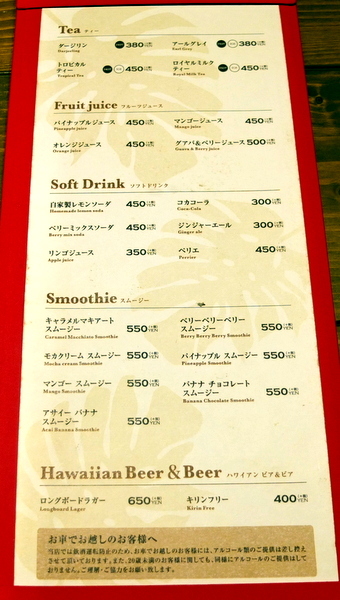 Tea ティー
ダージリン 380
Darjeeling
アールグレイ 380
Earl Grey
トロピカル
ティー 450
Tropical Tea
ロイヤルミルク
ティー 450
Royal Milk Tea
Fruit juice フルーツジュース
パイナップルジュース 450
Pineapple juice
マンゴージュース 450
Mango juice
オレンジジュース 450
Orange juice
グアバ&ベリージュース 500
Guava & Berry juice
Soft Drink ソフトドリンク
自家製レモンソーダ 450
Homemade lemon soda
コカコーラ 300
Coca-Cola
ベリーミックスソーダ 450
Berry mix soda
ジンジャーエール 300
Ginger ale
リンゴジュース 350
Apple juice
ペリエ 450
Perrier
Smoothie スムージー
キャラメルマキアート
スムージー 550
Caramel Macchiato Smoothie
ベリーベリーベリー
スムージー 550
Berry Berry Berry Smoothie
モカクリーム スムージー 550
Mocha cream Smoothie
パイナップル スムージー 550
Pineapple Smoothie
マンゴー スムージー 550
Mango Smoothie
バナナ チョコレート
スムージー 550
Banana Chocolate Smoothie
アサイー バナナ
スムージー 550
Acai Banana Smoothie
Hawaiian Beer & Beer ハワイアン ビア&ビア
ロングボードラガー 650
Longboard Lager
キリンフリー 400
Kirin Free
お車でお越しのお客様へ
当店では飲酒運転防止のため、お車でお越しのお客様には、アルコール類のご提供は差し控え
させて頂いております。また、20歳未満のお客様に関しても、同様にアルコールのご提供はして
おりません。ご理解・ご協力をお願い致します。